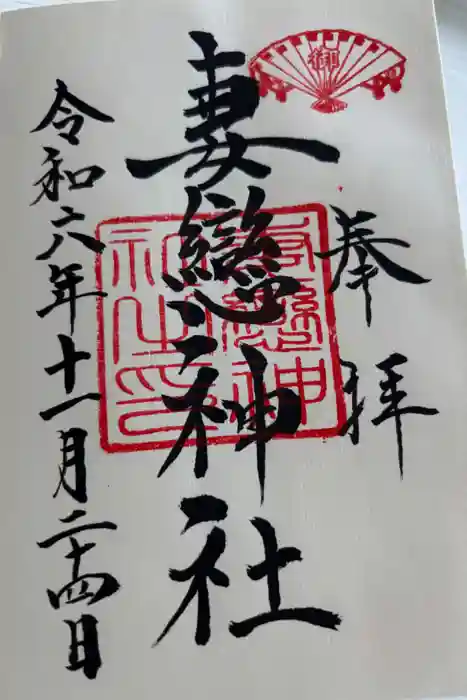 奉拝
妻戀神社
妻戀神社之印
令和六年十一月二十四日